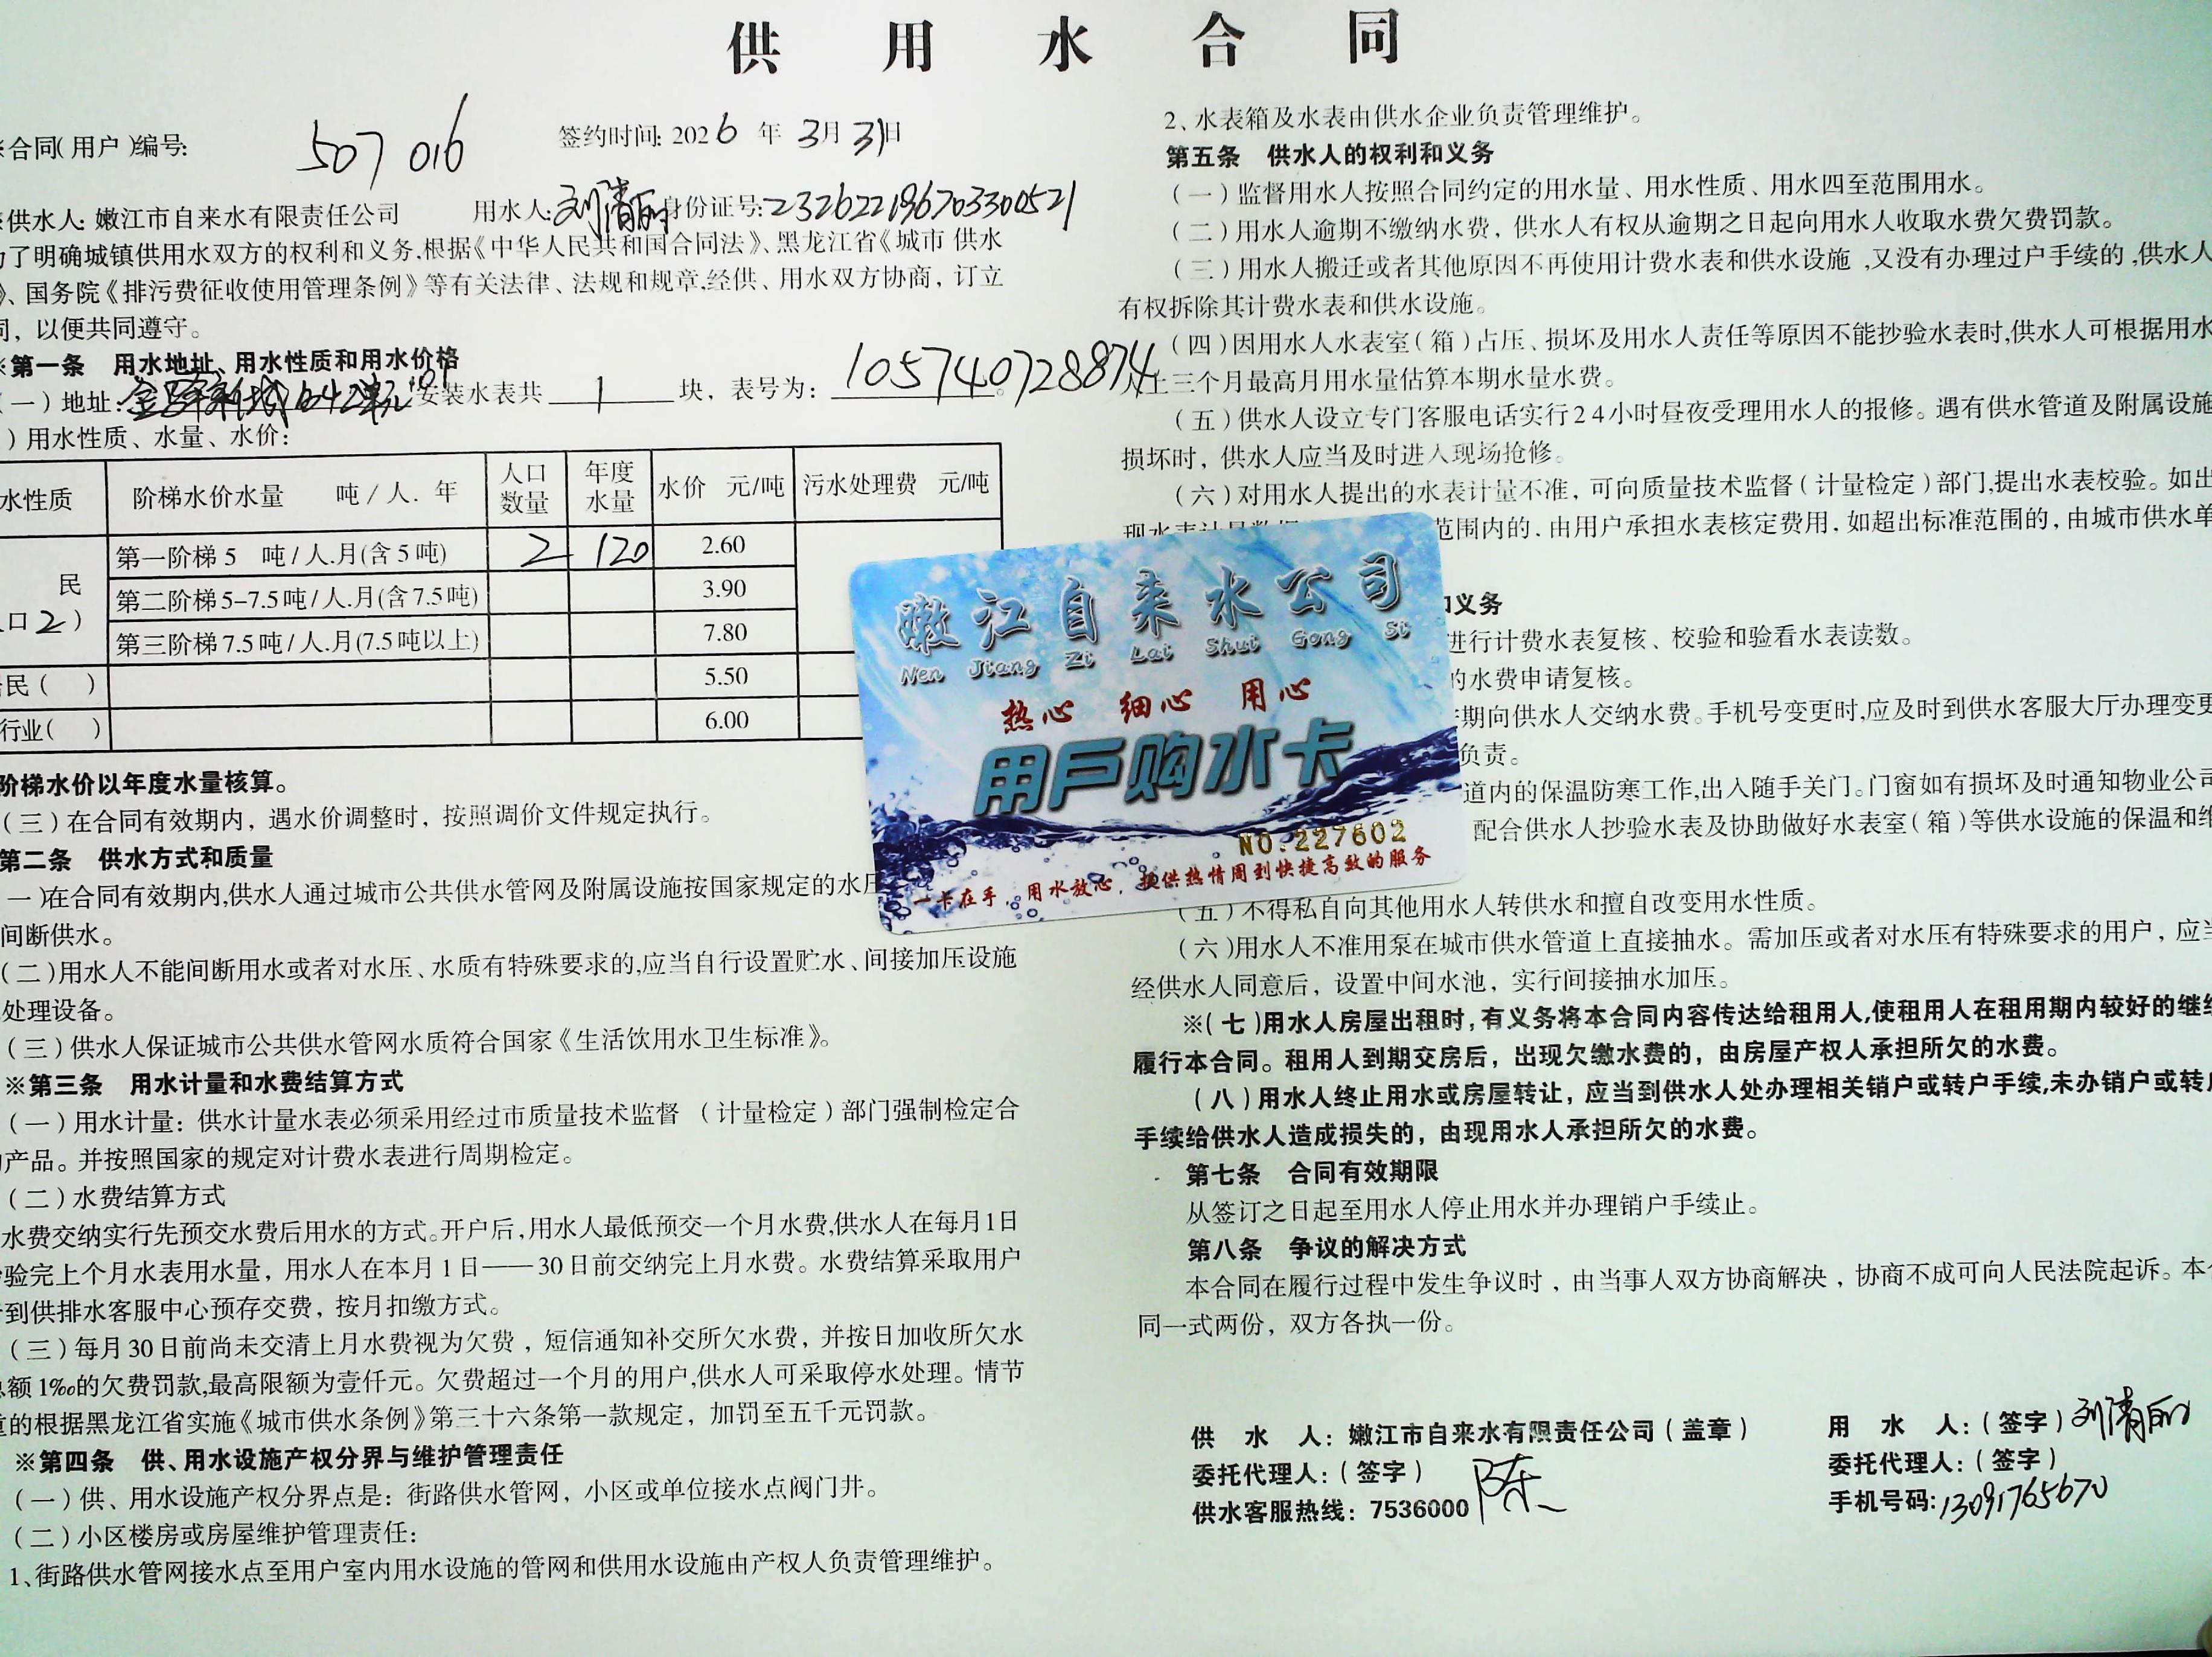 供用水合同
※合同(用户)编号: 507016
签约时间: 2026年3月31日
※供水人: 嫩江市自来水有限责任公司 用水人: 刘清丽 身份证号: 232622196703300521
为了明确城镇供用水双方的权利和义务,根据《中华人民共和国合同法》、黑龙江省《城市 供水
》、国务院《排污费征收使用管理条例》等有关法律、法规和规章,经供、用水双方协商，订立
同，以便共同遵守。
※第一条 用水地址、用水性质和用水价格
(一)地址: 安装水表共 1 块，表号为: 105740728874。
)用水性质、水量、水价:
水性质 阶梯水价水量 吨/人.年 人口数量 年度水量 水价 元/吨 污水处理费 元/吨
民 第一阶梯 5 吨/人.月(含5吨) 2 120 2.60
口2) 第二阶梯 5-7.5吨/人.月(含7.5吨) 3.90
第三阶梯 7.5吨/人.月(7.5吨以上) 7.80
民( ) 5.50
行业( ) 6.00
阶梯水价以年度水量核算。
(三)在合同有效期内，遇水价调整时，按照调价文件规定执行。
第二条 供水方式和质量
一)在合同有效期内,供水人通过城市公共供水管网及附属设施按国家规定的水压
间断供水。
(二)用水人不能间断用水或者对水压、水质有特殊要求的,应当自行设置贮水、间接加压设施
处理设备。
(三)供水人保证城市公共供水管网水质符合国家《生活饮用水卫生标准》。
※第三条 用水计量和水费结算方式
(一)用水计量: 供水计量水表必须采用经过市质量技术监督 (计量检定)部门强制检定合
产品。并按照国家的规定对计费水表进行周期检定。
(二)水费结算方式
水费交纳实行先预交水费后用水的方式。开户后,用水人最低预交一个月水费,供水人在每月1日
验完上个月水表用水量，用水人在本月1日——30日前交纳完上月水费。水费结算采取用户
到供排水客服中心预存交费，按月扣缴方式。
(三)每月30日前尚未交清上月水费视为欠费，短信通知补交所欠水费，并按日加收所欠水
额1‰的欠费罚款,最高限额为壹仟元。欠费超过一个月的用户,供水人可采取停水处理。情节
重的根据黑龙江省实施《城市供水条例》第三十六条第一款规定，加罚至五千元罚款。
※第四条 供、用水设施产权分界与维护管理责任
(一)供、用水设施产权分界点是: 街路供水管网，小区或单位接水点阀门井。
(二)小区楼房或房屋维护管理责任:
1、街路供水管网接水点至用户室内用水设施的管网和供用水设施由产权人负责管理维护。
2、水表箱及水表由供水企业负责管理维护。
第五条 供水人的权利和义务
(一)监督用水人按照合同约定的用水量、用水性质、用水四至范围用水。
(二)用水人逾期不缴纳水费，供水人有权从逾期之日起向用水人收取水费欠费罚款。
(三)用水人搬迁或者其他原因不再使用计费水表和供水设施,又没有办理过户手续的,供水人
有权拆除其计费水表和供水设施。
(四)因用水人水表室(箱)占压、损坏及用水人责任等原因不能抄验水表时,供水人可根据用水
人上三个月最高月用水量估算本期水量水费。
(五)供水人设立专门客服电话实行24小时昼夜受理用水人的报修。遇有供水管道及附属设施
损坏时，供水人应当及时进入现场抢修。
(六)对用水人提出的水表计量不准，可向质量技术监督(计量检定)部门,提出水表校验。如出
现水表计量数据 范围内的，由用户承担水表核定费用，如超出标准范围的，由城市供水单
和义务
进行计费水表复核、校验和验看水表读数。
的水费申请复核。
期向供水人交纳水费。手机号变更时,应及时到供水客服大厅办理变更
负责。
道内的保温防寒工作,出入随手关门。门窗如有损坏及时通知物业公司
配合供水人抄验水表及协助做好水表室(箱)等供水设施的保温和维
(五)不得私自向其他用水人转供水和擅自改变用水性质。
(六)用水人不准用泵在城市供水管道上直接抽水。需加压或者对水压有特殊要求的用户，应当
经供水人同意后，设置中间水池，实行间接抽水加压。
※(七)用水人房屋出租时,有义务将本合同内容传达给租用人,使租用人在租用期内较好的继续
履行本合同。租用人到期交房后，出现欠缴水费的，由房屋产权人承担所欠的水费。
(八)用水人终止用水或房屋转让，应当到供水人处办理相关销户或转户手续,未办销户或转户
手续给供水人造成损失的，由现用水人承担所欠的水费。
第七条 合同有效期限
从签订之日起至用水人停止用水并办理销户手续止。
第八条 争议的解决方式
本合同在履行过程中发生争议时，由当事人双方协商解决，协商不成可向人民法院起诉。本合
同一式两份，双方各执一份。
供 水 人: 嫩江市自来水有限责任公司(盖章)
委托代理人:(签字) 陈
供水客服热线: 7536000
用 水 人:(签字) 刘清丽
委托代理人:(签字)
手机号码: 13091765670
嫩江自来水公司
Nen Jiang Zi Lai Shui Gong Si
热心 细心 用心
用户购水卡
NO.227602
一卡在手，用水放心，提供热情周到快捷高效的服务